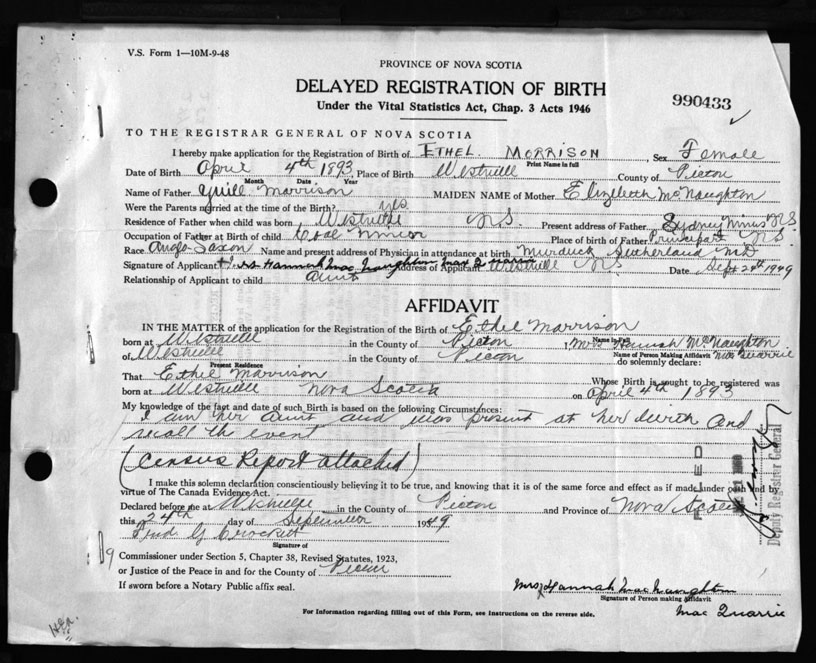 V.S. Form 1—10M-9-48
PROVINCE OF NOVA SCOTIA
DELAYED REGISTRATION OF BIRTH
Under the Vital Statistics Act, Chap. 3 Acts 1946
990433
TO THE REGISTRAR GENERAL OF NOVA SCOTIA
I hereby make application for the Registration of Birth of ETHEL MORRISON, Sex Female
Print Name in full
Date of Birth April 4th 1893, Place of Birth Westville County of Pictou
Month Day Year
Name of Father Morrison MAIDEN NAME of Mother Elizabeth McNaughton
Were the Parents married at the time of the Birth? yes
Residence of Father when child was born Westville N.S. Present address of Father Sydney Mines N.S.
Occupation of Father at Birth of child Coal Minior Place of birth of Father N.S.
Race Anglo-Saxon Name and present address of Physician in attendance at birth Murdick Sutherland M.D
Signature of Applicant Mrs Hannah MacNaughton MacQuarrie Address of Applicant Westville N.S Date Sept 24th 1949
Relationship of Applicant to child aunt
AFFIDAVIT
IN THE MATTER of the application for the Registration of the Birth of Ethel Morrison
Name in Full
born at Westville in the County of Pictou, Mrs Hannah McNaughton
Name of Person Making Affidavit MacQuarrie
of Westville in the County of Pictou do solemnly declare:
Present Residence
That Ethel Morrison Whose Birth is sought to be registered was
born at Westville Nova Scocia on April 4th 1893
My knowledge of the fact and date of such Birth is based on the following Circumstances:
I am her aunt and was present at her birth and
recall the event
(Census Report attached)
I make this solemn declaration conscientiously believing it to be true, and knowing that it is of the same force and effect as if made under oath and by
virtue of The Canada Evidence Act.
Declared before me at Westville in the County of Pictou and Province of Nova Scocia
this 24th day of September 1949
And G Crockett
Signature of
Commissioner under Section 5, Chapter 38, Revised Statutes, 1923,
or Justice of the Peace in and for the County of Pictou
If sworn before a Notary Public affix seal.
Mrs Hannah MacNaughton
Signature of Person making Affidavit
MacQuarrie
For Information regarding filling out of this Form, see Instructions on the reverse side.
FILED
Deputy Registrar General